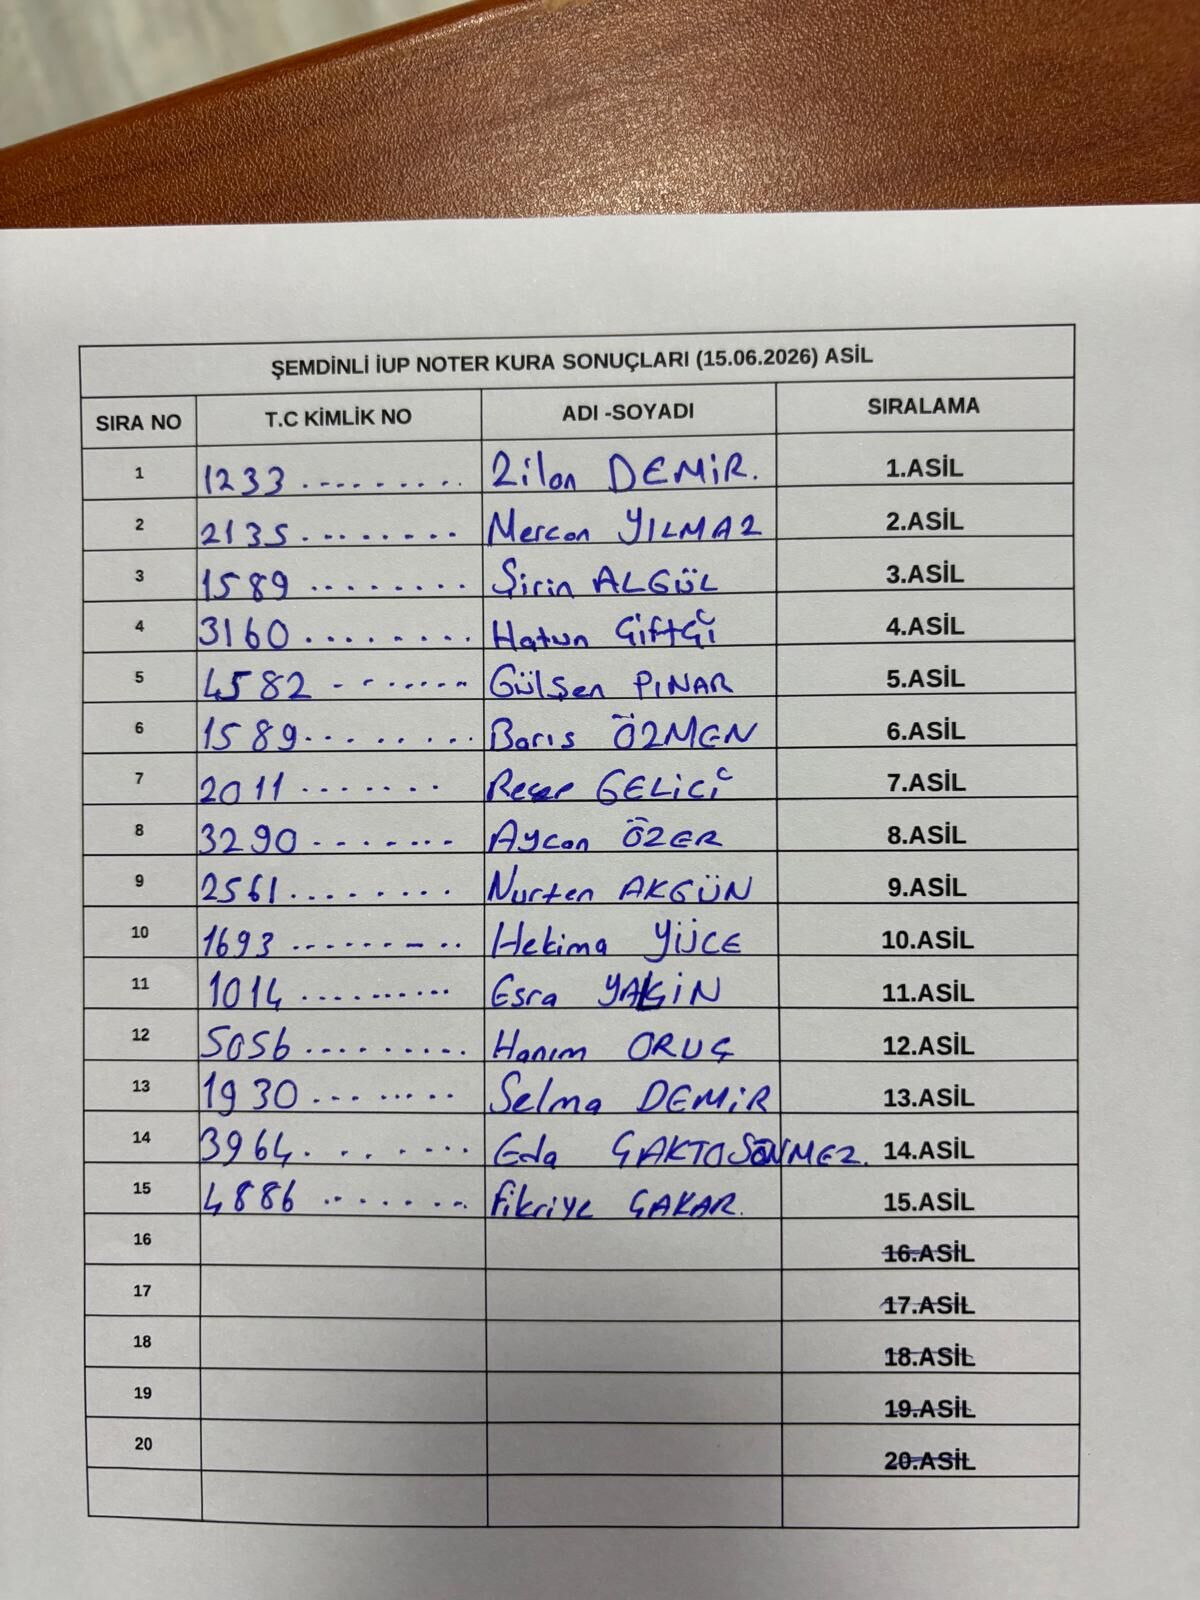 ŞEMDİNLİ İUP NOTER KURA SONUÇLARI (15.06.2026) ASİL
SIRA NO T.C KİMLİK NO ADI -SOYADI SIRALAMA
1 1233 ......... Zilan DEMİR. 1.ASİL
2 2135 ........ Mercan YILMAZ 2.ASİL
3 1589 ........ Şirin ALGÜL 3.ASİL
4 3160 ........ Hatun Çiftçi 4.ASİL
5 4582 ........ Gülşen PINAR 5.ASİL
6 1589 ........ Barıs ÖZMEN 6.ASİL
7 2011 ....... GELİCİ 7.ASİL
8 3290 ....... Aycan ÖZER 8.ASİL
9 2561 ........ Nurten AKGÜN 9.ASİL
10 1693 .......... Hekima YÜCE 10.ASİL
11 1014 .......... Esra 11.ASİL
12 5056 .......... Hanım ORUÇ 12.ASİL
13 1930 ........ Selma DEMİR 13.ASİL
14 3964 ....... Eda 14.ASİL
15 4886 ........ Fikriye ÇAKAR. 15.ASİL
16 16.ASİL
17 17.ASİL
18 18.ASİL
19 19.ASİL
20 20.ASİL